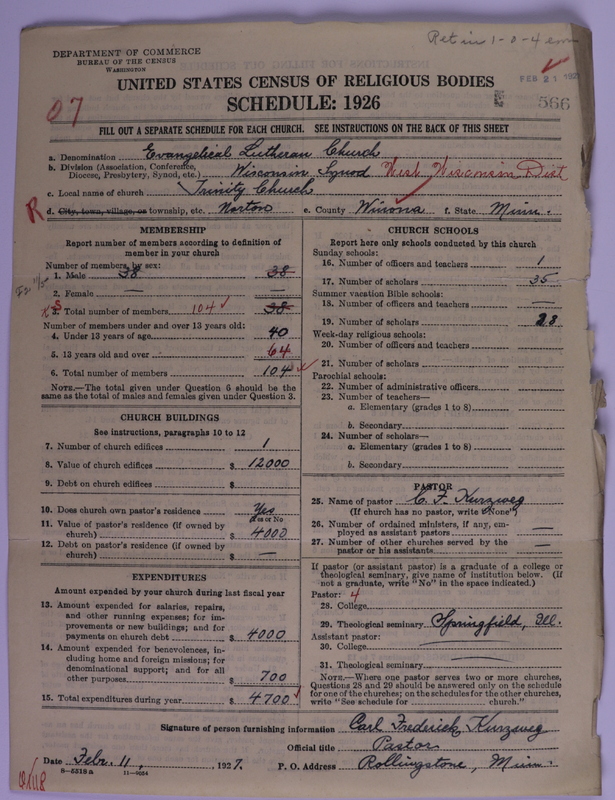 Ret in 1-8-4
DEPARTMENT OF COMMERCE
BUREAU OF THE CENSUS
WASHINGTON
UNITED STATES CENSUS OF RELIGIOUS BODIES
FEB 21 192
SCHEDULE: 1926
566
07
FILL OUT A SEPARATE SCHEDULE FOR EACH CHURCH. SEE INSTRUCTIONS ON THE BACK OF THIS SHEET
a. Denomination Evangelical Lutheran Church
b. Division (Association, Conference, Diocese, Presbytery, Synod, etc.) Wisconsin Synod West Wisconsin Dist
c. Local name of church Trinity Church
R d. City, town, village, or township, etc. Norton e. County Winona f. State Minn.
MEMBERSHIP
Report number of members according to definition of
member in your church
Number of members, by sex:
1. Male 38 38
2. Female — —
3. Total number of members 104 38
Number of members under and over 13 years old:
4. Under 13 years of age 40
5. 13 years old and over 64
6. Total number of members 104
NOTE.—The total given under Question 6 should be the
same as the total of males and females given under Question 3.
CHURCH BUILDINGS
See instructions, paragraphs 10 to 12
7. Number of church edifices 1
8. Value of church edifices $ 12000
9. Debt on church edifices $
10. Does church own pastor's residence Yes
Yes or No
11. Value of pastor's residence (if owned by
church) $ 4000
12. Debt on pastor's residence (if owned by
church) $ —
EXPENDITURES
Amount expended by your church during last fiscal year
13. Amount expended for salaries, repairs,
and other running expenses; for im-
provements or new buildings; and for
payments on church debt $ 4000
14. Amount expended for benevolences, in-
cluding home and foreign missions; for
denominational support; and for all
other purposes $ 700
15. Total expenditures during year $ 4700
CHURCH SCHOOLS
Report here only schools conducted by this church
Sunday schools:
16. Number of officers and teachers 1
17. Number of scholars 35
Summer vacation Bible schools:
18. Number of officers and teachers —
19. Number of scholars 28
Week-day religious schools:
20. Number of officers and teachers
21. Number of scholars
Parochial schools:
22. Number of administrative officers
23. Number of teachers—
a. Elementary (grades 1 to 8)
b. Secondary
24. Number of scholars—
a. Elementary (grades 1 to 8)
b. Secondary
PASTOR
25. Name of pastor C. F. Kurzweg
(If church has no pastor, write "None")
26. Number of ordained ministers, if any, em-
ployed as assistant pastors —
27. Number of other churches served by the
pastor or his assistants —
If pastor (or assistant pastor) is a graduate of a college or
theological seminary, give name of institution below. (If
not a graduate, write "No" in the space indicated.)
Pastor: 4
28. College
29. Theological seminary Springfield, Ill.
Assistant pastor:
30. College
31. Theological seminary
NOTE.—Where one pastor serves two or more churches,
Questions 28 and 29 should be answered only on the schedule
for one of the churches; on the schedules for the other churches,
write "See schedule for church."
Signature of person furnishing information Carl Frederick Kurzweg
Official title Pastor
Date Febr. 11, 1927. P. O. Address Rollingstone, Minn.
8—5518 a 11—9054